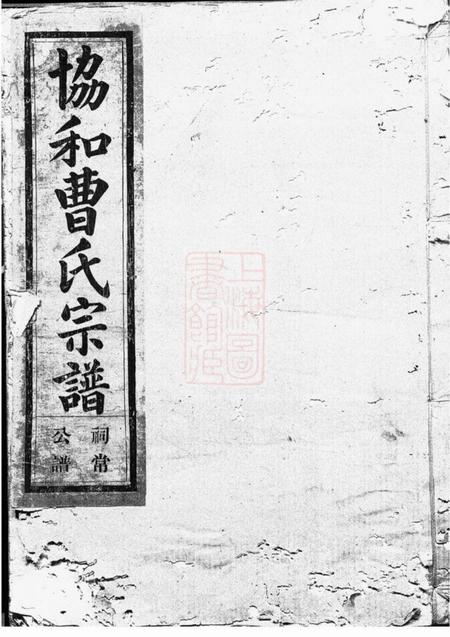 協和曹氏宗譜
祠常
公譜
上海圖
書館藏